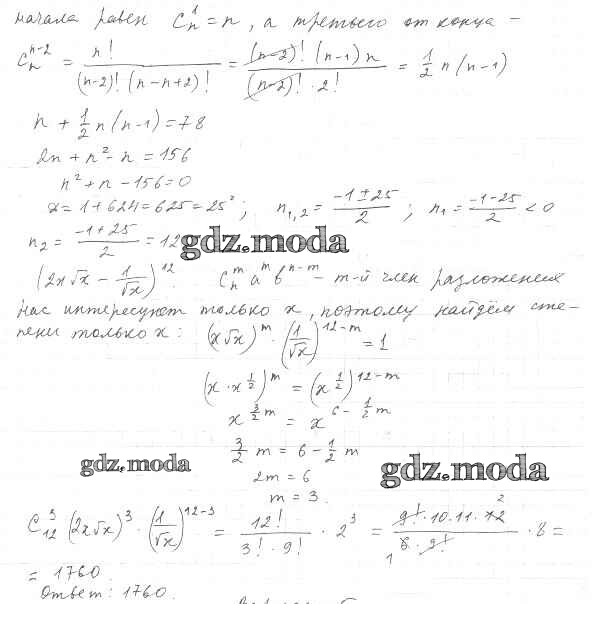 начала равен C_n^1 = n, а третьего от конца –
C_n^{n-2} = n! / ((n-2)! (n-n+2)!) = ((n-2)! (n-1) n) / ((n-2)! · 2!) = 1/2 n(n-1)
n + 1/2 n(n-1) = 78
2n + n² - n = 156
n² + n - 156 = 0
D = 1 + 624 = 625 = 25² ; n_{1,2} = (-1 ± 25)/2 ; n_1 = (-1-25)/2 < 0
n_2 = (-1+25)/2 = 12
gdz.moda
(2x√x - 1/√x)^{12} . C_n^m a^m b^{n-m} – m-й член разложения
Нас интересует только x, поэтому найдём сте-
пени только x: (x√x)^m · (1/√x)^{12-m} = 1
(x · x^{1/2})^m = (x^{1/2})^{12-m}
x^{3/2 m} = x^{6 - 1/2 m}
3/2 m = 6 - 1/2 m
gdz.moda
gdz.moda
2m = 6
m = 3.
C_{12}^3 (2x√x)^3 · (1/√x)^{12-3} = 12! / (3! · 9!) · 2³ = (9! · 10 · 11 · 12 2) / (1 6 · 9!) · 8 =
= 1760.
Ответ: 1760.